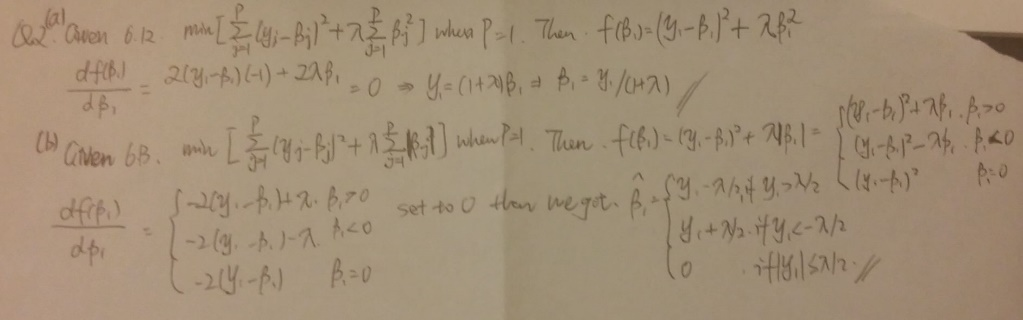 Q2. (a) Given 6.12. min[∑_{j=1}^{p}(y_j-β_j)²+λ∑_{j=1}^{p}β_j²] when P=1. Then f(β₁)=(y₁-β₁)²+λβ₁²
df(β₁)/dβ₁ = 2(y₁-β₁)(-1)+2λβ₁ = 0 ⇒ y₁=(1+λ)β₁ ⇒ β₁=y₁/(1+λ) //
(b) Given 6.13. min[∑_{j=1}^{p}(y_j-β_j)²+λ∑_{j=1}^{p}|β_j|] when P=1. Then f(β₁)=(y₁-β₁)²+λ|β₁| = { (y₁-β₁)²+λβ₁. β₁>0
(y₁-β₁)²-λβ₁. β₁<0
(y₁-β₁)² β₁=0
df(β₁)/dβ₁ = { -2(y₁-β₁)+λ. β₁>0
-2(y₁-β₁)-λ β₁<0
-2(y₁-β₁) β₁=0
set to 0 then we got. β̂₁ = { y₁-λ/2, if y₁>λ/2
y₁+λ/2. if y₁<-λ/2
0 . if |y₁|≤λ/2. //